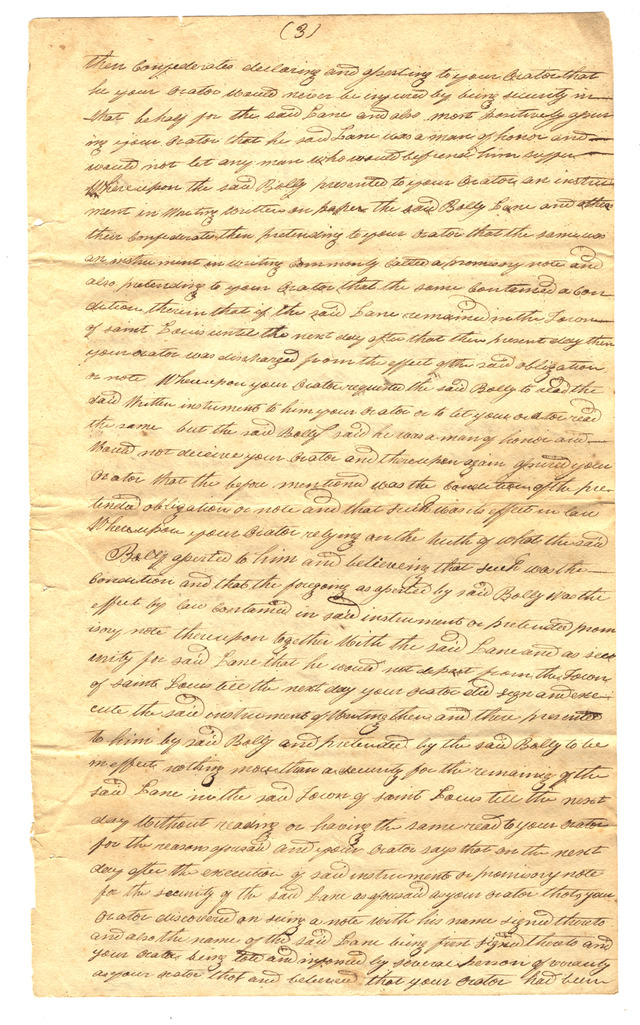 (3)
their Confederates declaring and asserting to your Orator that
he your Orator would never be injured by being security in
that behalf for the said Lane and also most positively assur
ing your Orator that he said Lane was a man of honor and
would not let any man who would befriend him suffer
Whereupon the said Bolly presented to your Orator an instru
ment in Writing written on paper the said Bolly Lane and other
their Confederates then pretending to your Orator that the same was
an instrument in writing Commonly Called a promisory note and
also pretending to your Orator that the same Contained a Con
dition therein that if the said Lane remained in the Town
of saint Louis until the next day after that then present day then
your Orator was discharged from the effect of the said obligation
or note Whereupon your Orator requested the said Bolly to read the
said Written instrument to him your Orator or to let your orator read
the same but the said Bolly said he was a man of honor and
Would not deceive your Orator and thereupon again assured your
Orator that the before mentioned was the Condition of the pre
tended obligation or note and that such was its effect in law
Whereupon your Orator relying on the truth of what the said
Bolly asserted to him and believeing that such was the
Condition and that the foregoing as asserted by said Bolly was the
effect by law Contained in said instrument or pretended prom
isory note thereupon together With the said Lane and as sec
urity for said Lane that he would not depart from the Town
of saint Louis till the next day your Orator did sign and exe
cute the said instrument of Writing then and there presented
to him by said Bolly and pretended by the said Bolly to be
in effect nothing more than a security for the remaining of the
said Lane in the said Town of saint Louis till the next
day Without reading or having the same read to your Orator
for the reasons aforesaid and your Orator says that on the next
day after the execution of said instrument or promisory note
for the security of the said Lane as aforesaid as your Orator thot your
Orator discovered on seing a note with his name signed thereto
and also the name of the said Lane being first signed thereto and
your Orator being told and informed by several person of veracity
as your orator thot and believed that your Orator had been